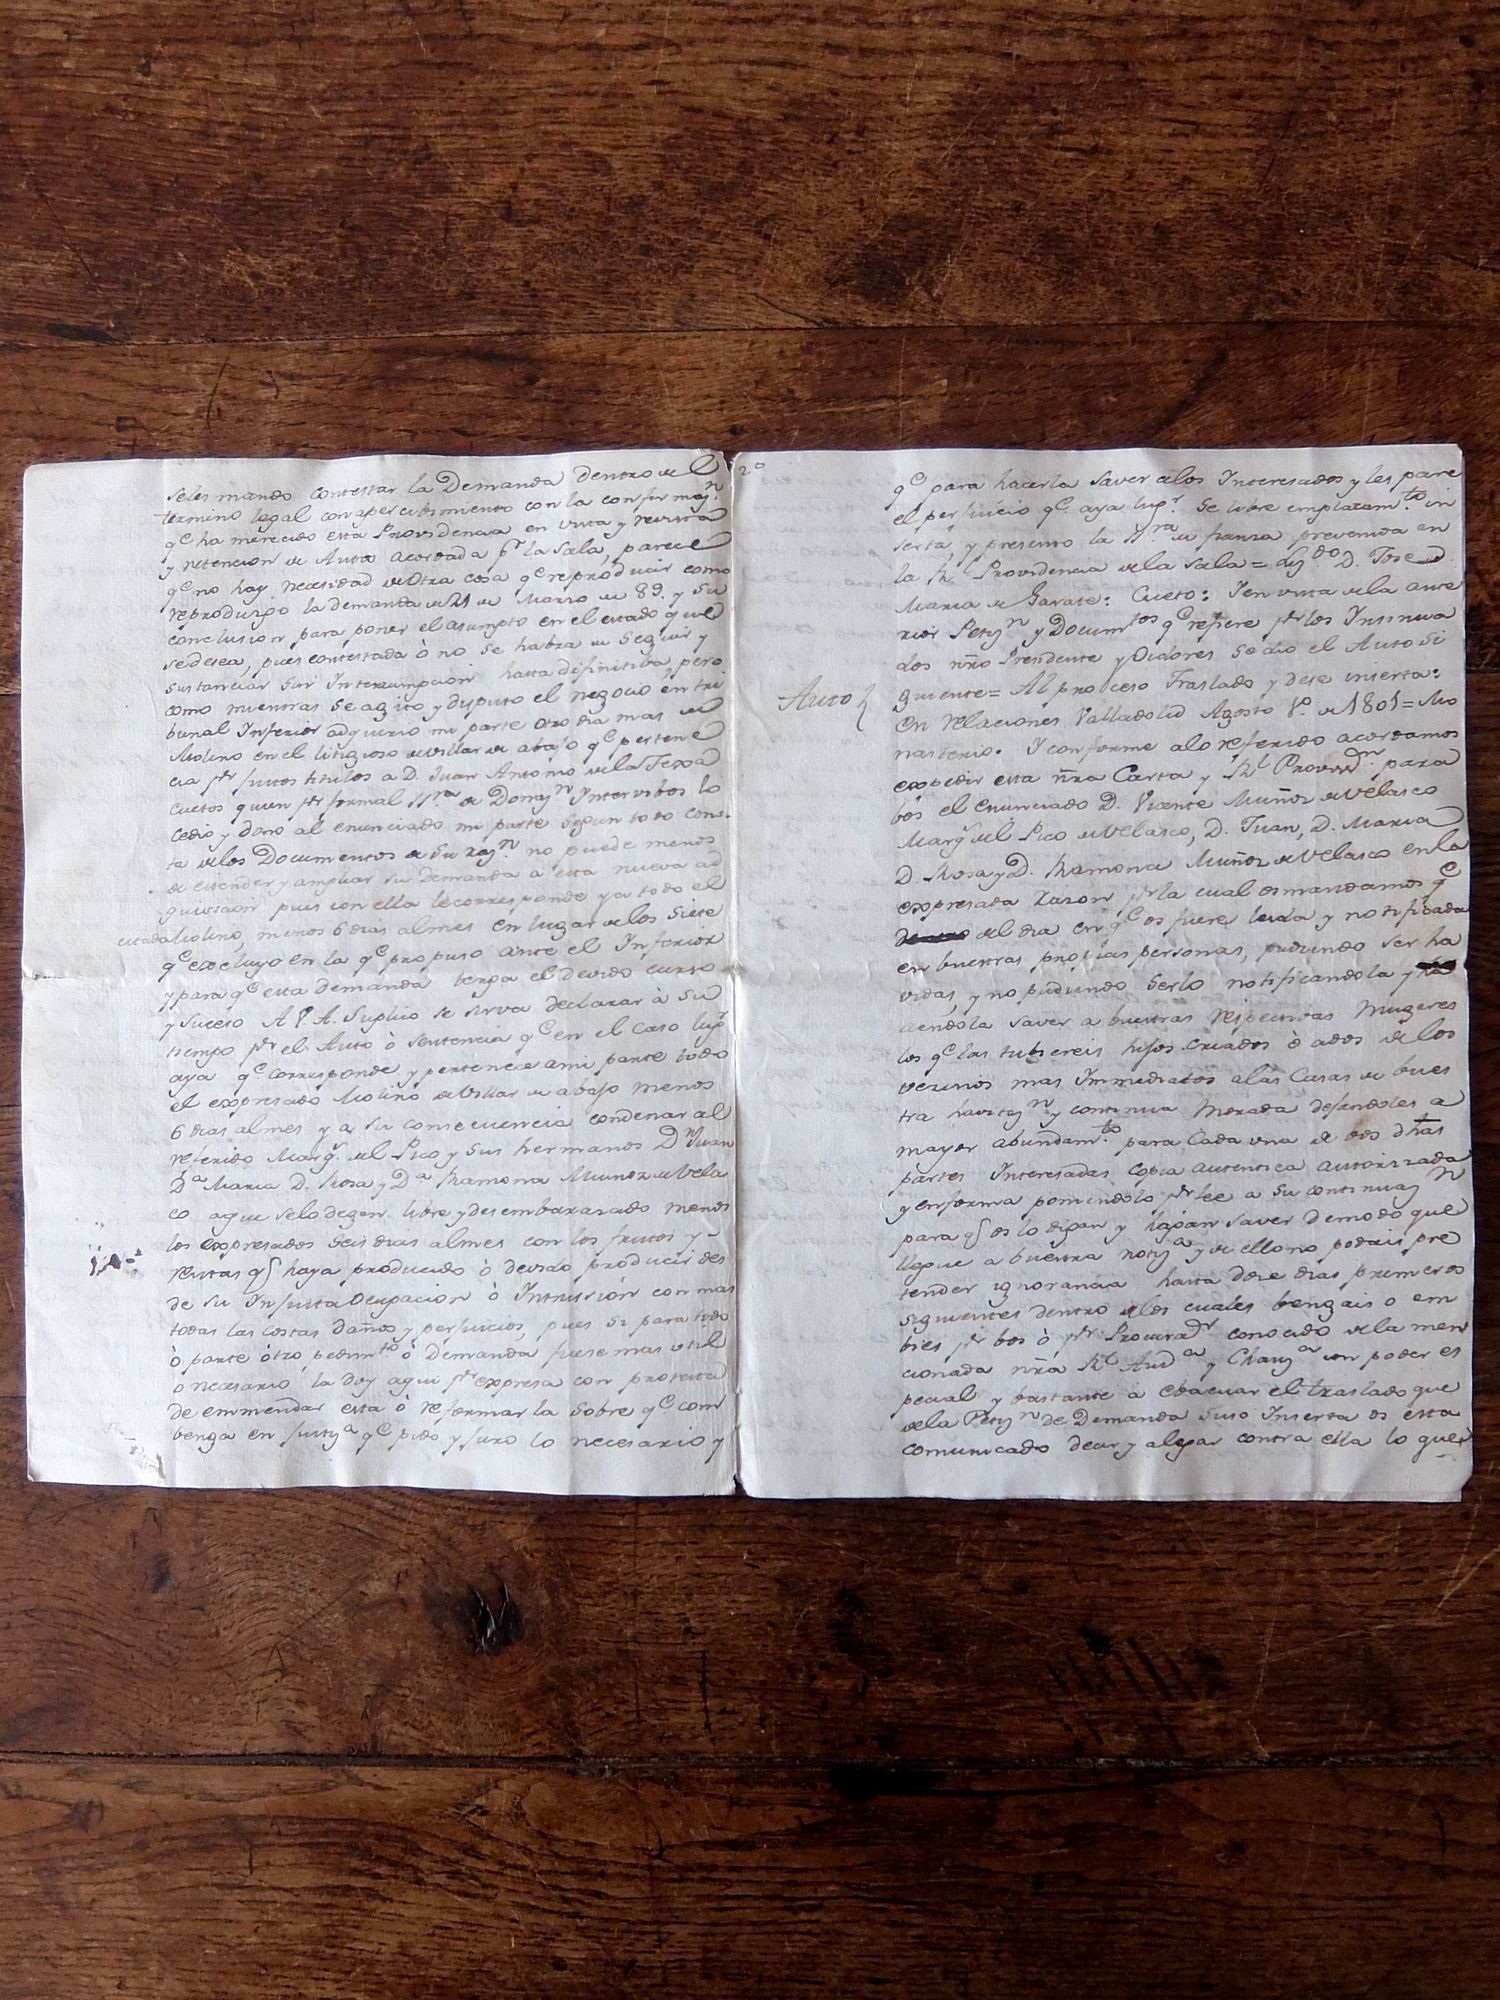 seles mando contestar la Demanda dentro de el
termino legal con apercibimiento con la confirmazn.
qe ha merecido esta Providencia en vista y revista
y retencion de Auto acordada pr la Sala, parece
qe no hay necesidad de otra cosa qe reproducir como
reproduzgo la demanda de 21 de Marzo de 89. y su
conclusion para poner el asumpto en el estado que
se desea, pues contestada ò no se habra de seguir y
sustanciar sin Interrumpcion hasta difinitiva, pero
como mientras se agito y disputo el negocio en tri
bunal Inferior adquirio mi parte otro dia mas de
Molino en el litigioso de Villar de abajo qe pertene
cia pr justos titulos a D. Juan Antonio de la Texa
Cuetos quien pr formal de Donazn Intervibos lo
cedio y dono al enunciado mi parte segun todo cons-
ta de los Documentos de su razn. no puede menos
de estender y ampliar su demanda a esta nueva ad
quisicion pues con ella le corresponde ya todo el
citado Molino, menos 6 dias al mes en lugar de los siete
qe excluyo en la qe propuso ante el Inferior
y para qe esta demanda tenga el devido curso
y suceso A V. A. Suplico se sirva declarar à su
tiempo pr el Auto ò sentencia qe en el caso lugr
aya qe corresponde y pertenece a mi parte todo
el expresado Molino de Villar de abajo menos
6 dias al mes y a su consecuencia condenar al
referido Marqs. del Pico y sus hermanos Dn Juan
Da Maria D. Rosa y Da Ramona Muñoz de Vela
co a que se lo degen libre y desembarazado menos
los expresados seis dias al mes con los frutos y
rentas qe haya producido ò devido producir des
de su Injusta Ocupacion ò Intrusión con mas
todas las costas daños y perjuicios, pues si para todo
ò parte òtro pedimto ò demanda fuese mas util
o necesario la doy aqui pr expresa con protexta
de enmendar esta ò reformarla sobre qe con
benga en justiza qe pido y juro lo necesario y
2º
qe para hacerla saver a los Interesados y les pare
el perjuicio qe aya lugr se libre emplazamto in
serta, y presento la de fianza prevenida en
la Rl Providencia de la Sala = Lizdo D. Jose
Maria de Garate: Cueto: Y en vista de la ante
rior Petizn y Documtos qe refiere pr los Insinua
dos nrõ Presidente y Oidores se dio el Auto si
Auto guiente = Al proceso Traslado y dese inserta:
en relaciones Valladolid Agosto 1º. de 1801 = Mo
nasterio. Y conforme a lo referido acordamos
expedir esta nr̃a Carta y Rl Provisn para
bos el enunciado D. Vicente Muñoz de Velasco
Marqs del Pico de Velasco, D. Juan, D. Maria
D. Rosa y D. Ramona Muñoz de Velasco en la
expresada razon pr la cual os mandamos qe
del dia en qe os fuere leida y notificada
en buestras propias personas, pudiendo ser ha
vidas, y no pudiendo serlo notificandola y
aendola saver a buestras respectivas Mugeres
los qe las tubiereis hijos criados ò a dos de los
vezinos mas Immediatos a las Casas de bues
tra havitazn y continua Morada dejandoles a
mayor abundamto para cada una de bos dhas
partes Interesadas copia autentica autorizada
y en forma poniendolo pr fee a su continuazn
para qe os lo digan y hagan saver de modo que
llegue a buestra notiza y de ello no podais pre
tender ignorancia hasta doze dias primeros
siguientes dentro de los cuales bengais o em
bies pr bos ò pr Procuradr conocido de la men
cionada nr̃a Rl Auda y Chanza con poder es
pecial y bastante a ebacuar el traslado que
de la Petizn de Demanda suso Inserta os esta
comunicado decir y alegar contra ella lo que